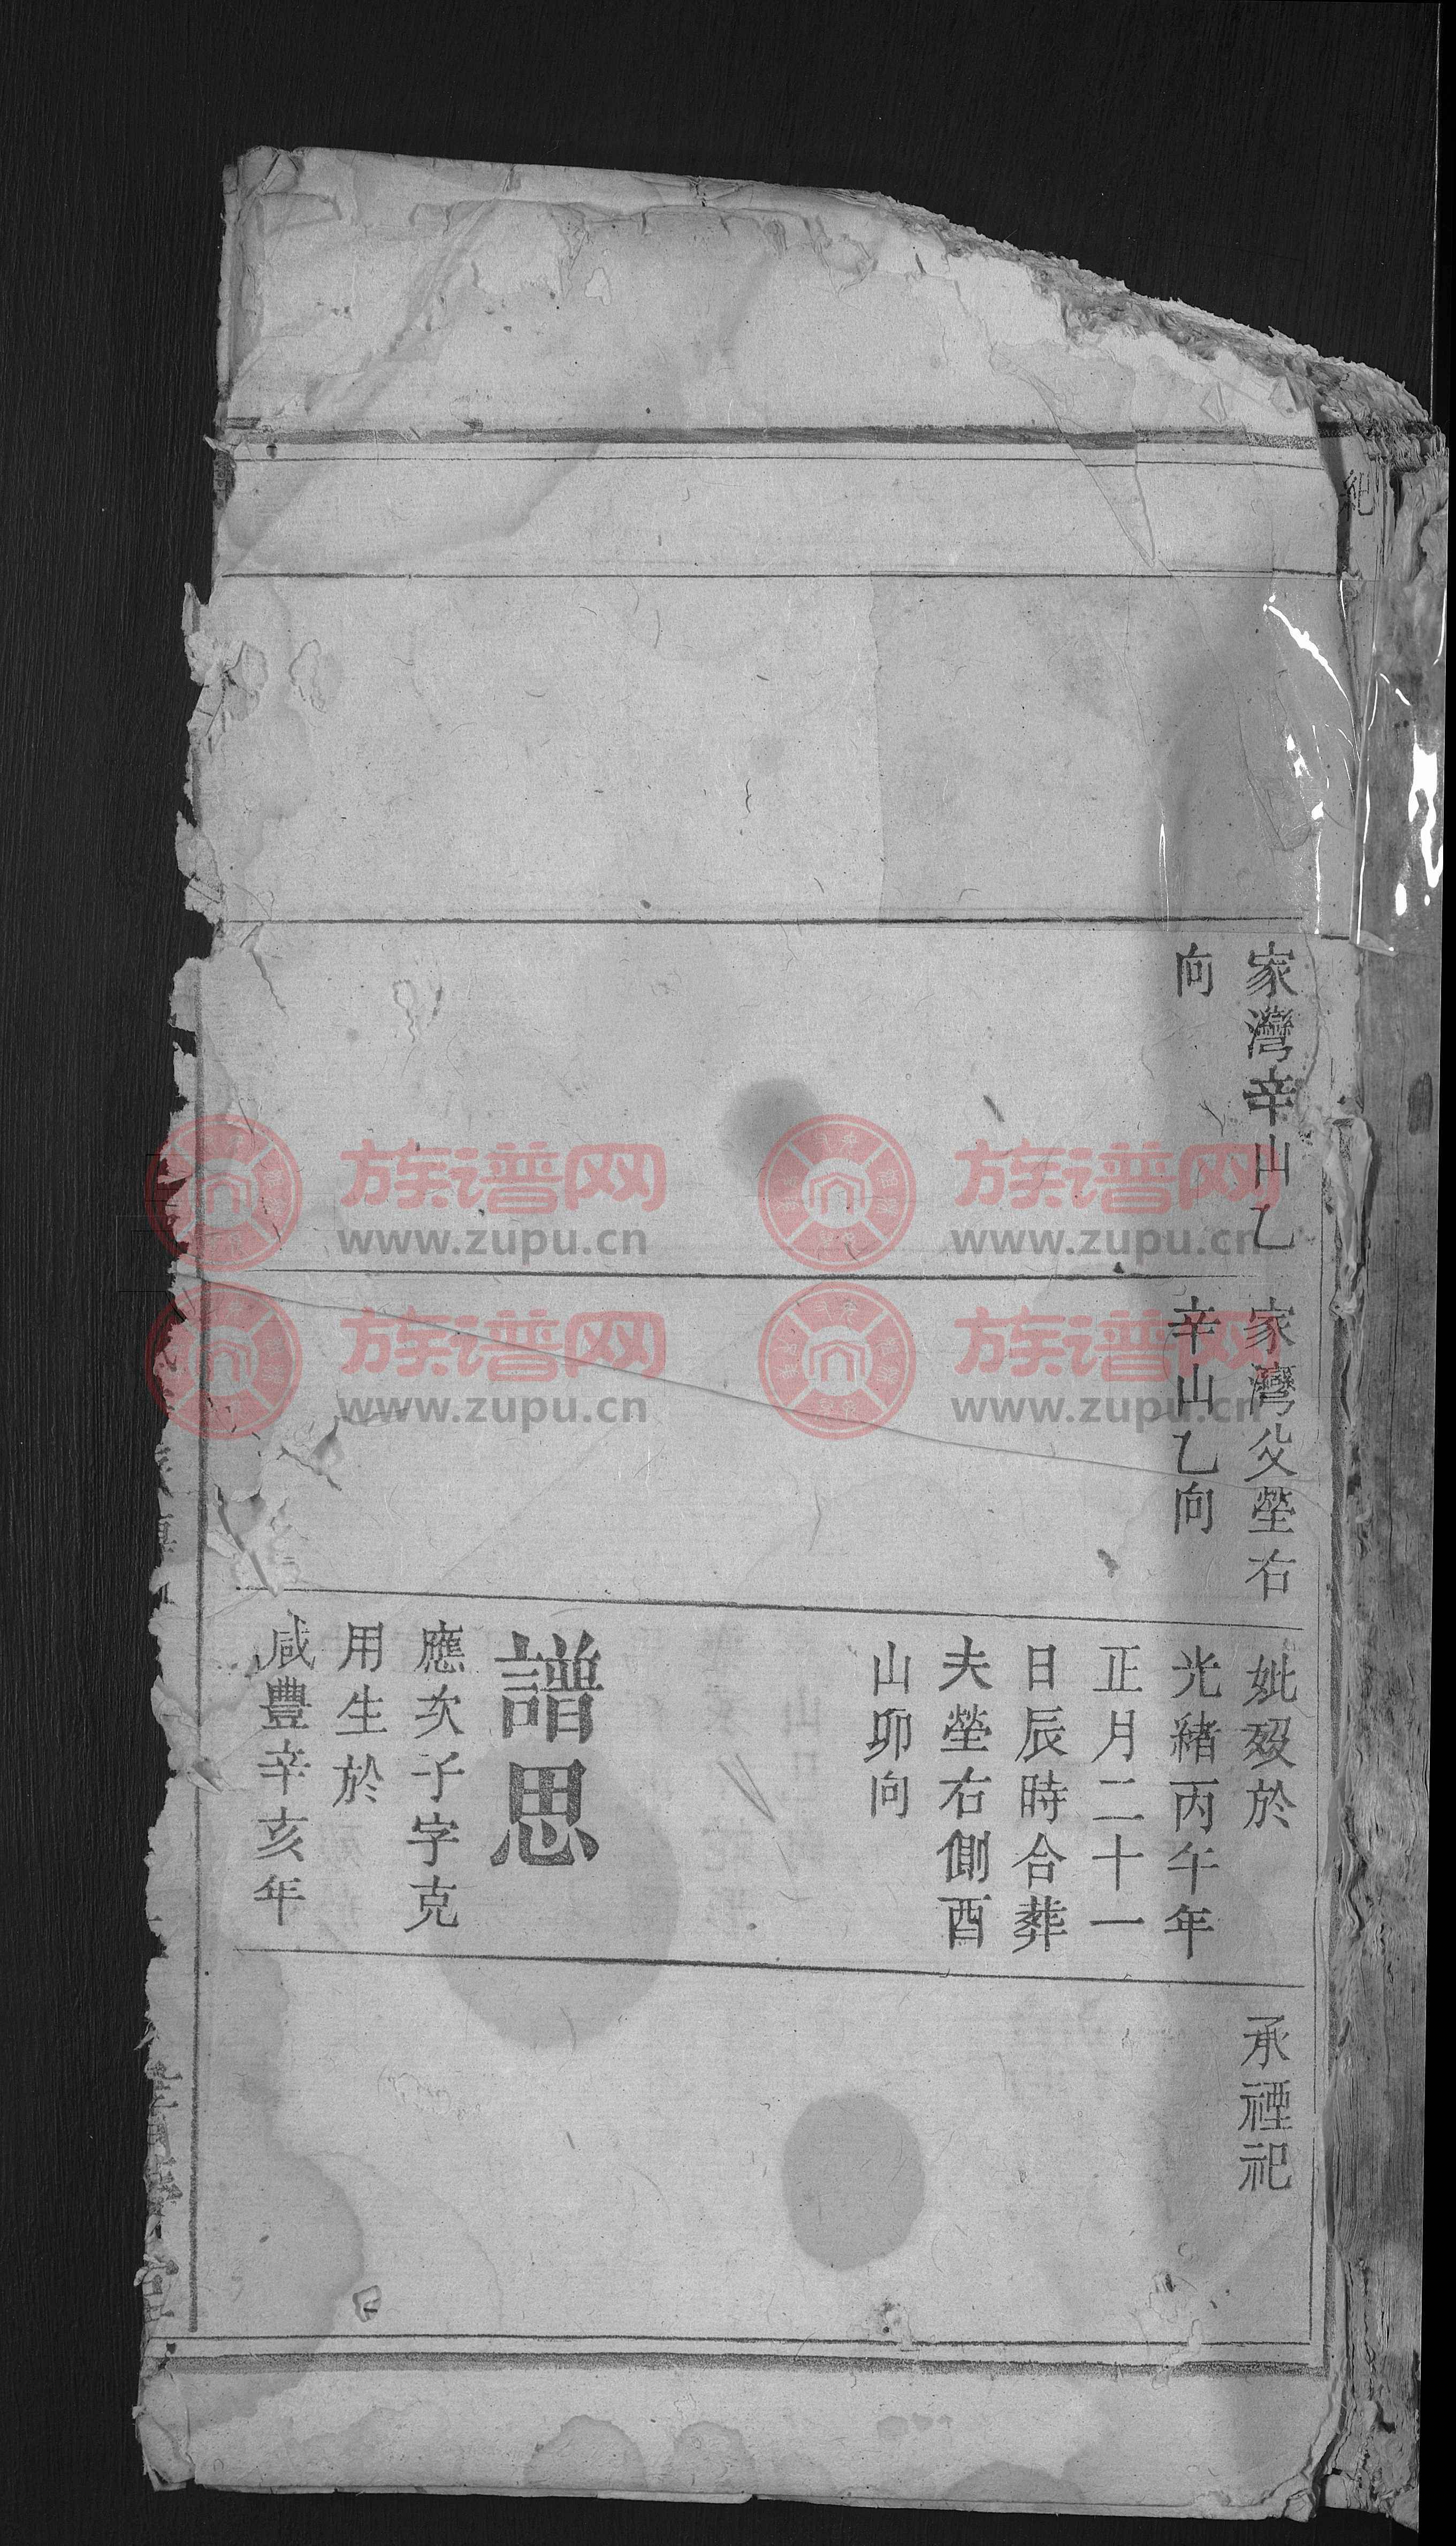 家灣辛山乙
向
家灣父塋右
辛山乙向
妣歿於
光緒丙午年
正月二十一
日辰時合葬
夫塋右側酉
山卯向
譜思
應次子字克
用生於
咸豐辛亥年
承禋祀
族谱网
www.zupu.cn
族谱网
www.zupu.cn
族谱网
www.zupu.cn
族谱网
www.zupu.cn